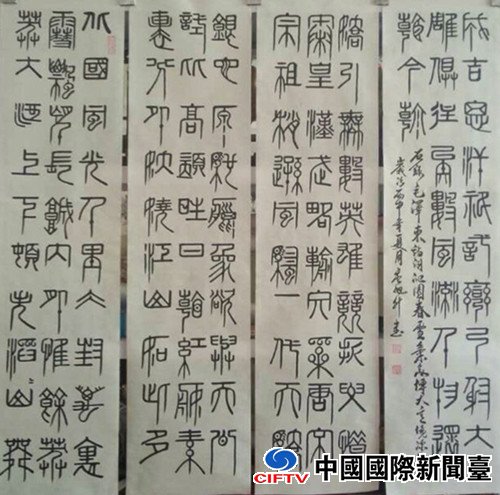 北國風光千里冰封萬里
雪飄望長城內外惟餘莽
莽大河上下頓失滔〻山舞
銀蛇原馳蠟象欲與天公
試比高須晴日看紅裝素
裹分外妖嬈江山如此多
嬌引無數英雄競折腰惜
秦皇漢武略輸文采唐宋
宗祖稍遜風騷一代天驕
成吉思汗祇識彎弓射大
雕俱往矣數風流人物還
看今朝
右錄毛澤東詞沁園春雪
歲次丙申年夏月
CIFTV
中國國際新聞臺